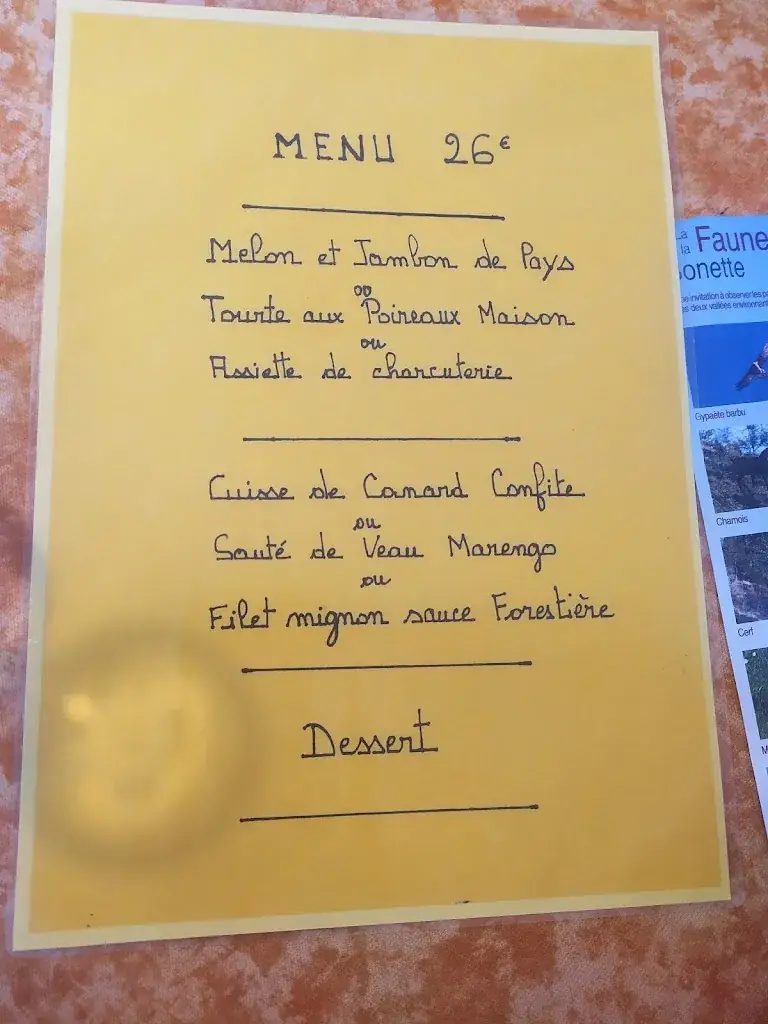 MENU 26€
Melon et Jambon de Pays
ou
Tourte aux Poireaux Maison
ou
Assiette de charcuterie
Cuisse de Canard Confite
ou
Sauté de Veau Marengo
ou
Filet mignon sauce Forestière
Dessert
La
la Faune
onette
invitation à observer les
deux vallées
Gypaète barbu
Chamois
Cerf
M